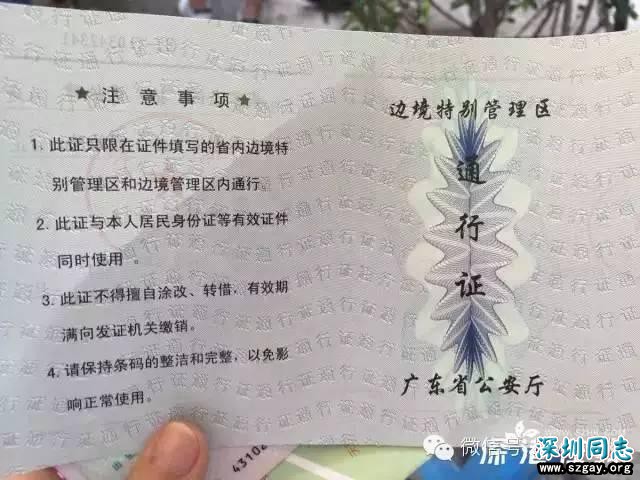 ★ 注意事项 ★
1. 此证只限在证件填写的省内边境特
别管理区和边境管理区内通行。
2. 此证与本人居民身份证等有效证件
同时使用 。
3. 此证不得擅自涂改、转借，有效期
满向发证机关缴销。
4. 请保持条码的整洁和完整，以免影
响正常使用。
边境特别管理区
通
行
证
广东省公安厅
43102
微信号
深圳同志
www.szgay.com